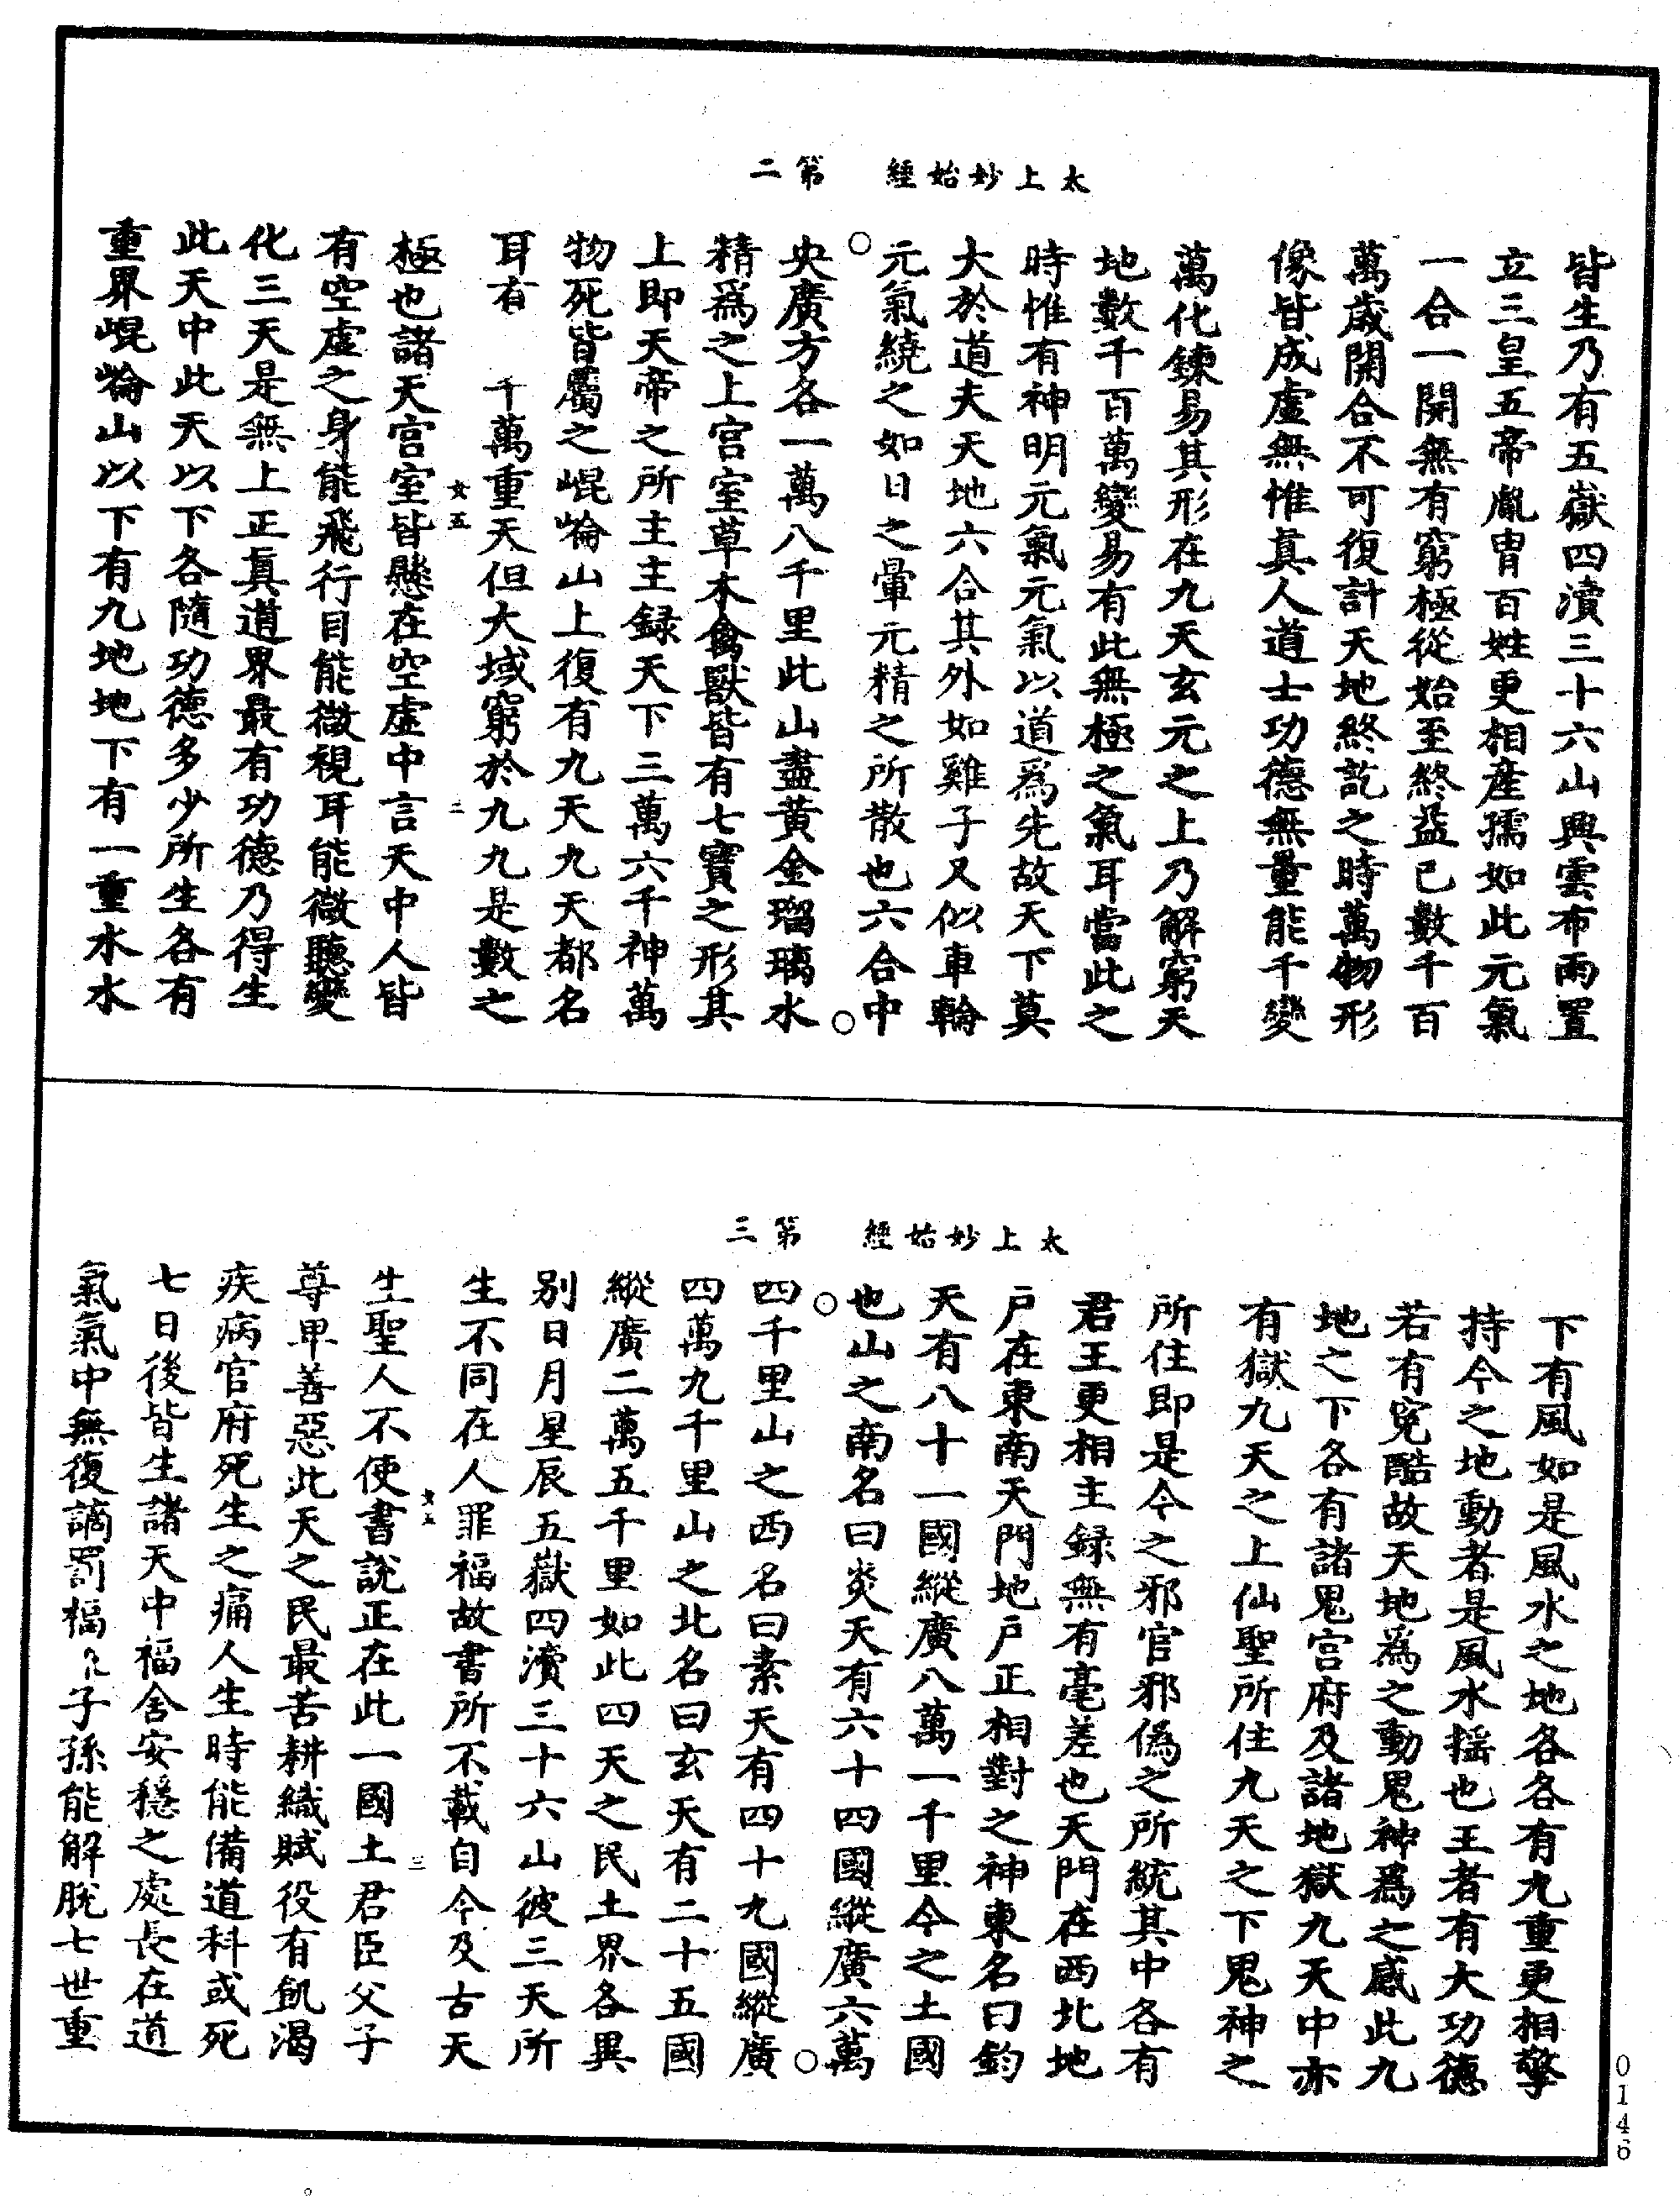 太上妙始經　第二
皆生乃有五嶽四瀆三十六山興雲布雨置
立三皇五帝胤胄百姓更相產孺如此元氣
一合一開無有窮極從始至終益已數千百
萬歲開合不可復計天地終訖之時萬物形
像皆成虛無惟真人道士功德無量能千變
萬化鍊易其形在九天玄元之上乃解窮天
地數千百萬變易有此無極之氣耳當此之
時惟有神明元氣元氣以道爲先故天下莫
大於道夫天地六合其外如雞子又似車輪
元氣繞之如日之暈元精之所散也六合中
央廣方各一萬八千里此山盡黃金瑠璃水
精爲之上宮室草木禽獸皆有七寶之形其
上即天帝之所主主録天下三萬六千神萬
物死皆屬之崐崘山上復有九天九天都名
耳有　千萬重天但大域窮於九九是數之
女五　二
極也諸天宮室皆懸在空虛中言天中人皆
有空虛之身能飛行目能徹視耳能徹聽變
化三天是無上正真道界最有功德乃得生
此天中此天以下各隨功德多少所生各有
重界崐崘山以下有九地地下有一重水水
太上妙始經　第三
下有風如是風水之地各各有九重更相擎
持今之地動者是風水摇也王者有大功德
若有寃酷故天地爲之動鬼神爲之感此九
地之下各有諸鬼宮府及諸地獄九天中亦
有獄九天之上仙聖所住九天之下鬼神之
所住即是今之邪官邪僞之所統其中各有
君王更相主録無有毫差也天門在西北地
户在東南天門地户正相對之神東名曰鈞
天有八十一國縱廣八萬一千里今之土國
也山之南名曰炎天有六十四國縱廣六萬
四千里山之西名曰素天有四十九國縱廣
四萬九千里山之北名曰玄天有二十五國
縱廣二萬五千里如此四天之民土界各異
别日月星辰五嶽四瀆三十六山彼三天所
生不同在人罪福故書所不載自今及古天
女五　三
生聖人不使書說正在此一國土君臣父子
尊卑善惡此天之民最苦耕織賦役有飢渴
疾病官府死生之痛人生時能備道科或死
七日後皆生諸天中福舍安穩之處長在道
氣氣中無復謫罰福　子孫能解脫七世重
0146